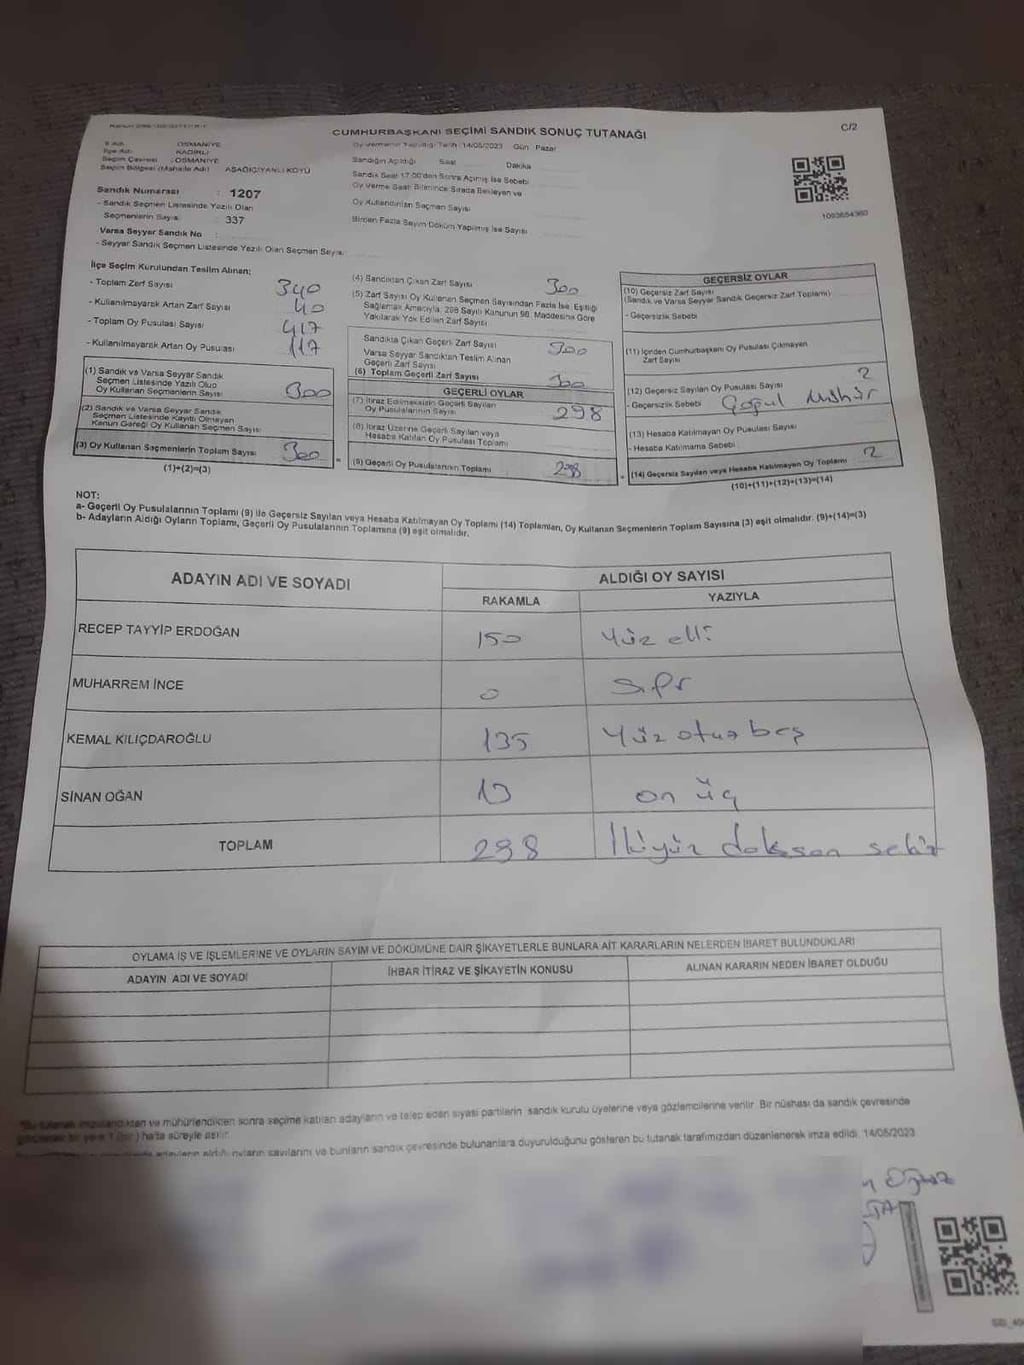 CUMHURBAŞKANI SEÇİMİ SANDIK SONUÇ TUTANAĞI
C/2
İli Adı : OSMANİYE
İlçe Adı : KADİRLİ
Seçim Çevresi : OSMANİYE
Seçim Bölgesi (Mahalle Adı) AŞAĞIÇIYANLI KÖYÜ
Sandık Numarası : 1207
- Sandık Seçmen Listesinde Yazılı Olan
Seçmenlerin Sayısı : 337
Varsa Seyyar Sandık No :
- Seyyar Sandık Seçmen Listesinde Yazılı Olan Seçmen Sayısı:
Oy Vermenin Yapıldığı Tarih :14/05/2023 Gün Pazar
Sandığın Açıldığı Saat Dakika
Sandık Saat 17:00'den Sonra Açılmış İse Sebebi
Oy Verme Saati Bitiminde Sırada Bekleyen ve
Oy Kullandırılan Seçmen Sayısı
Birden Fazla Sayım Döküm Yapılmış İse Sayısı
1093654360
İlçe Seçim Kurulundan Teslim Alınan;
- Toplam Zarf Sayısı 340
- Kullanılmayarak Artan Zarf Sayısı 40
- Toplam Oy Pusulası Sayısı 417
- Kullanılmayarak Artan Oy Pusulası 117
(1) Sandık ve Varsa Seyyar Sandık
Seçmen Listesinde Yazılı Olup
Oy Kullanan Seçmenlerin Sayısı 300
(2) Sandık ve Varsa Seyyar Sandık
Seçmen Listesinde Kayıtlı Olmayan
Kanun Gereği Oy Kullanan Seçmen Sayısı
(3) Oy Kullanan Seçmenlerin Toplam Sayısı 300
(1)+(2)=(3)
(4) Sandıktan Çıkan Zarf Sayısı 300
(5) Zarf Sayısı Oy Kullanan Seçmen Sayısından Fazla İse, Eşitliği
Sağlamak Amacıyla, 298 Sayılı Kanunun 98. Maddesine Göre
Yakılarak Yok Edilen Zarf Sayısı
Sandıkta Çıkan Geçerli Zarf Sayısı 300
Varsa Seyyar Sandıktan Teslim Alınan
Geçerli Zarf Sayısı
(6) Toplam Geçerli Zarf Sayısı 300
GEÇERLİ OYLAR
(7) İtiraz Edilmeksizin Geçerli Sayılan
Oy Pusulalarının Sayısı 298
(8) İtiraz Üzerine Geçerli Sayılan veya
Hesaba Katılan Oy Pusulası Toplamı
= (9) Geçerli Oy Pusulalarının Toplamı 298
GEÇERSİZ OYLAR
(10) Geçersiz Zarf Sayısı
(Sandık ve Varsa Seyyar Sandık Geçersiz Zarf Toplamı)
- Geçersizlik Sebebi
(11) İçinden Cumhurbaşkanı Oy Pusulası Çıkmayan
Zarf Sayısı
(12) Geçersiz Sayılan Oy Pusulası Sayısı 2
- Geçersizlik Sebebi Çoğul Mühür
(13) Hesaba Katılmayan Oy Pusulası Sayısı
- Hesaba Katılmama Sebebi
+ (14) Geçersiz Sayılan veya Hesaba Katılmayan Oy Toplamı 2
(10)+(11)+(12)+(13)=(14)
NOT:
a- Geçerli Oy Pusulalarının Toplamı (9) ile Geçersiz Sayılan veya Hesaba Katılmayan Oy Toplamı (14) Toplamları, Oy Kullanan Seçmenlerin Toplam Sayısına (3) eşit olmalıdır. (9)+(14)=(3)
b- Adayların Aldığı Oyların Toplamı, Geçerli Oy Pusulalarının Toplamına (9) eşit olmalıdır.
ADAYIN ADI VE SOYADI
ALDIĞI OY SAYISI
RAKAMLA YAZIYLA
RECEP TAYYİP ERDOĞAN 150 Yüz elli
MUHARREM İNCE 0 Sıfır
KEMAL KILIÇDAROĞLU 135 Yüz otuz beş
SİNAN OĞAN 13 on üç
TOPLAM 298 İkiyüz doksan sekiz
OYLAMA İŞ VE İŞLEMLERİNE VE OYLARIN SAYIM VE DÖKÜMÜNE DAİR ŞİKAYETLERLE BUNLARA AİT KARARLARIN NELERDEN İBARET BULUNDUKLARI
ADAYIN ADI VE SOYADI İHBAR İTİRAZ VE ŞİKAYETİN KONUSU ALINAN KARARIN NEDEN İBARET OLDUĞU
ve mühürlendikten sonra seçime katılan adayların ve talep eden siyasi partilerin sandık kurulu üyelerine veya gözlemcilerine verilir. Bir nüshası da sandık çevresinde
bir yere 1 (bir) hafta süreyle asılır.
adayların aldığı oyların sayılarını ve bunların sandık çevresinde bulunanlara duyurulduğunu gösteren bu tutanak tarafımızdan düzenlenerek imza edildi. 14/05/2023